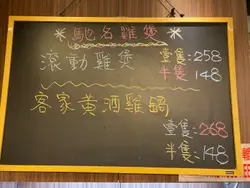 *馳名雞煲*
滾動雞煲 壹隻:258
半隻:148
客家黄酒雞鍋
壹隻:268
半隻:148